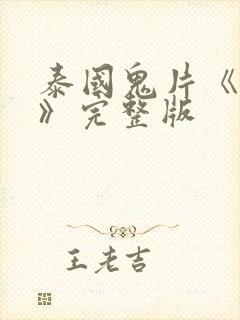 泰國鬼片《
》完整版
王老吉